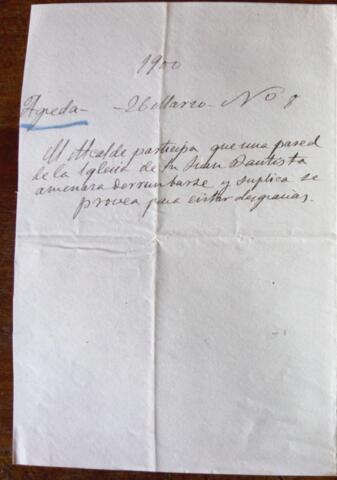 1900
Agreda - - 26 Marzo - Nº 8
El Alcalde participa que una pared
de la Iglesia de Sn Juan Bautista
amenaza derrumbarse y suplica se
provea para evitar desgracias.